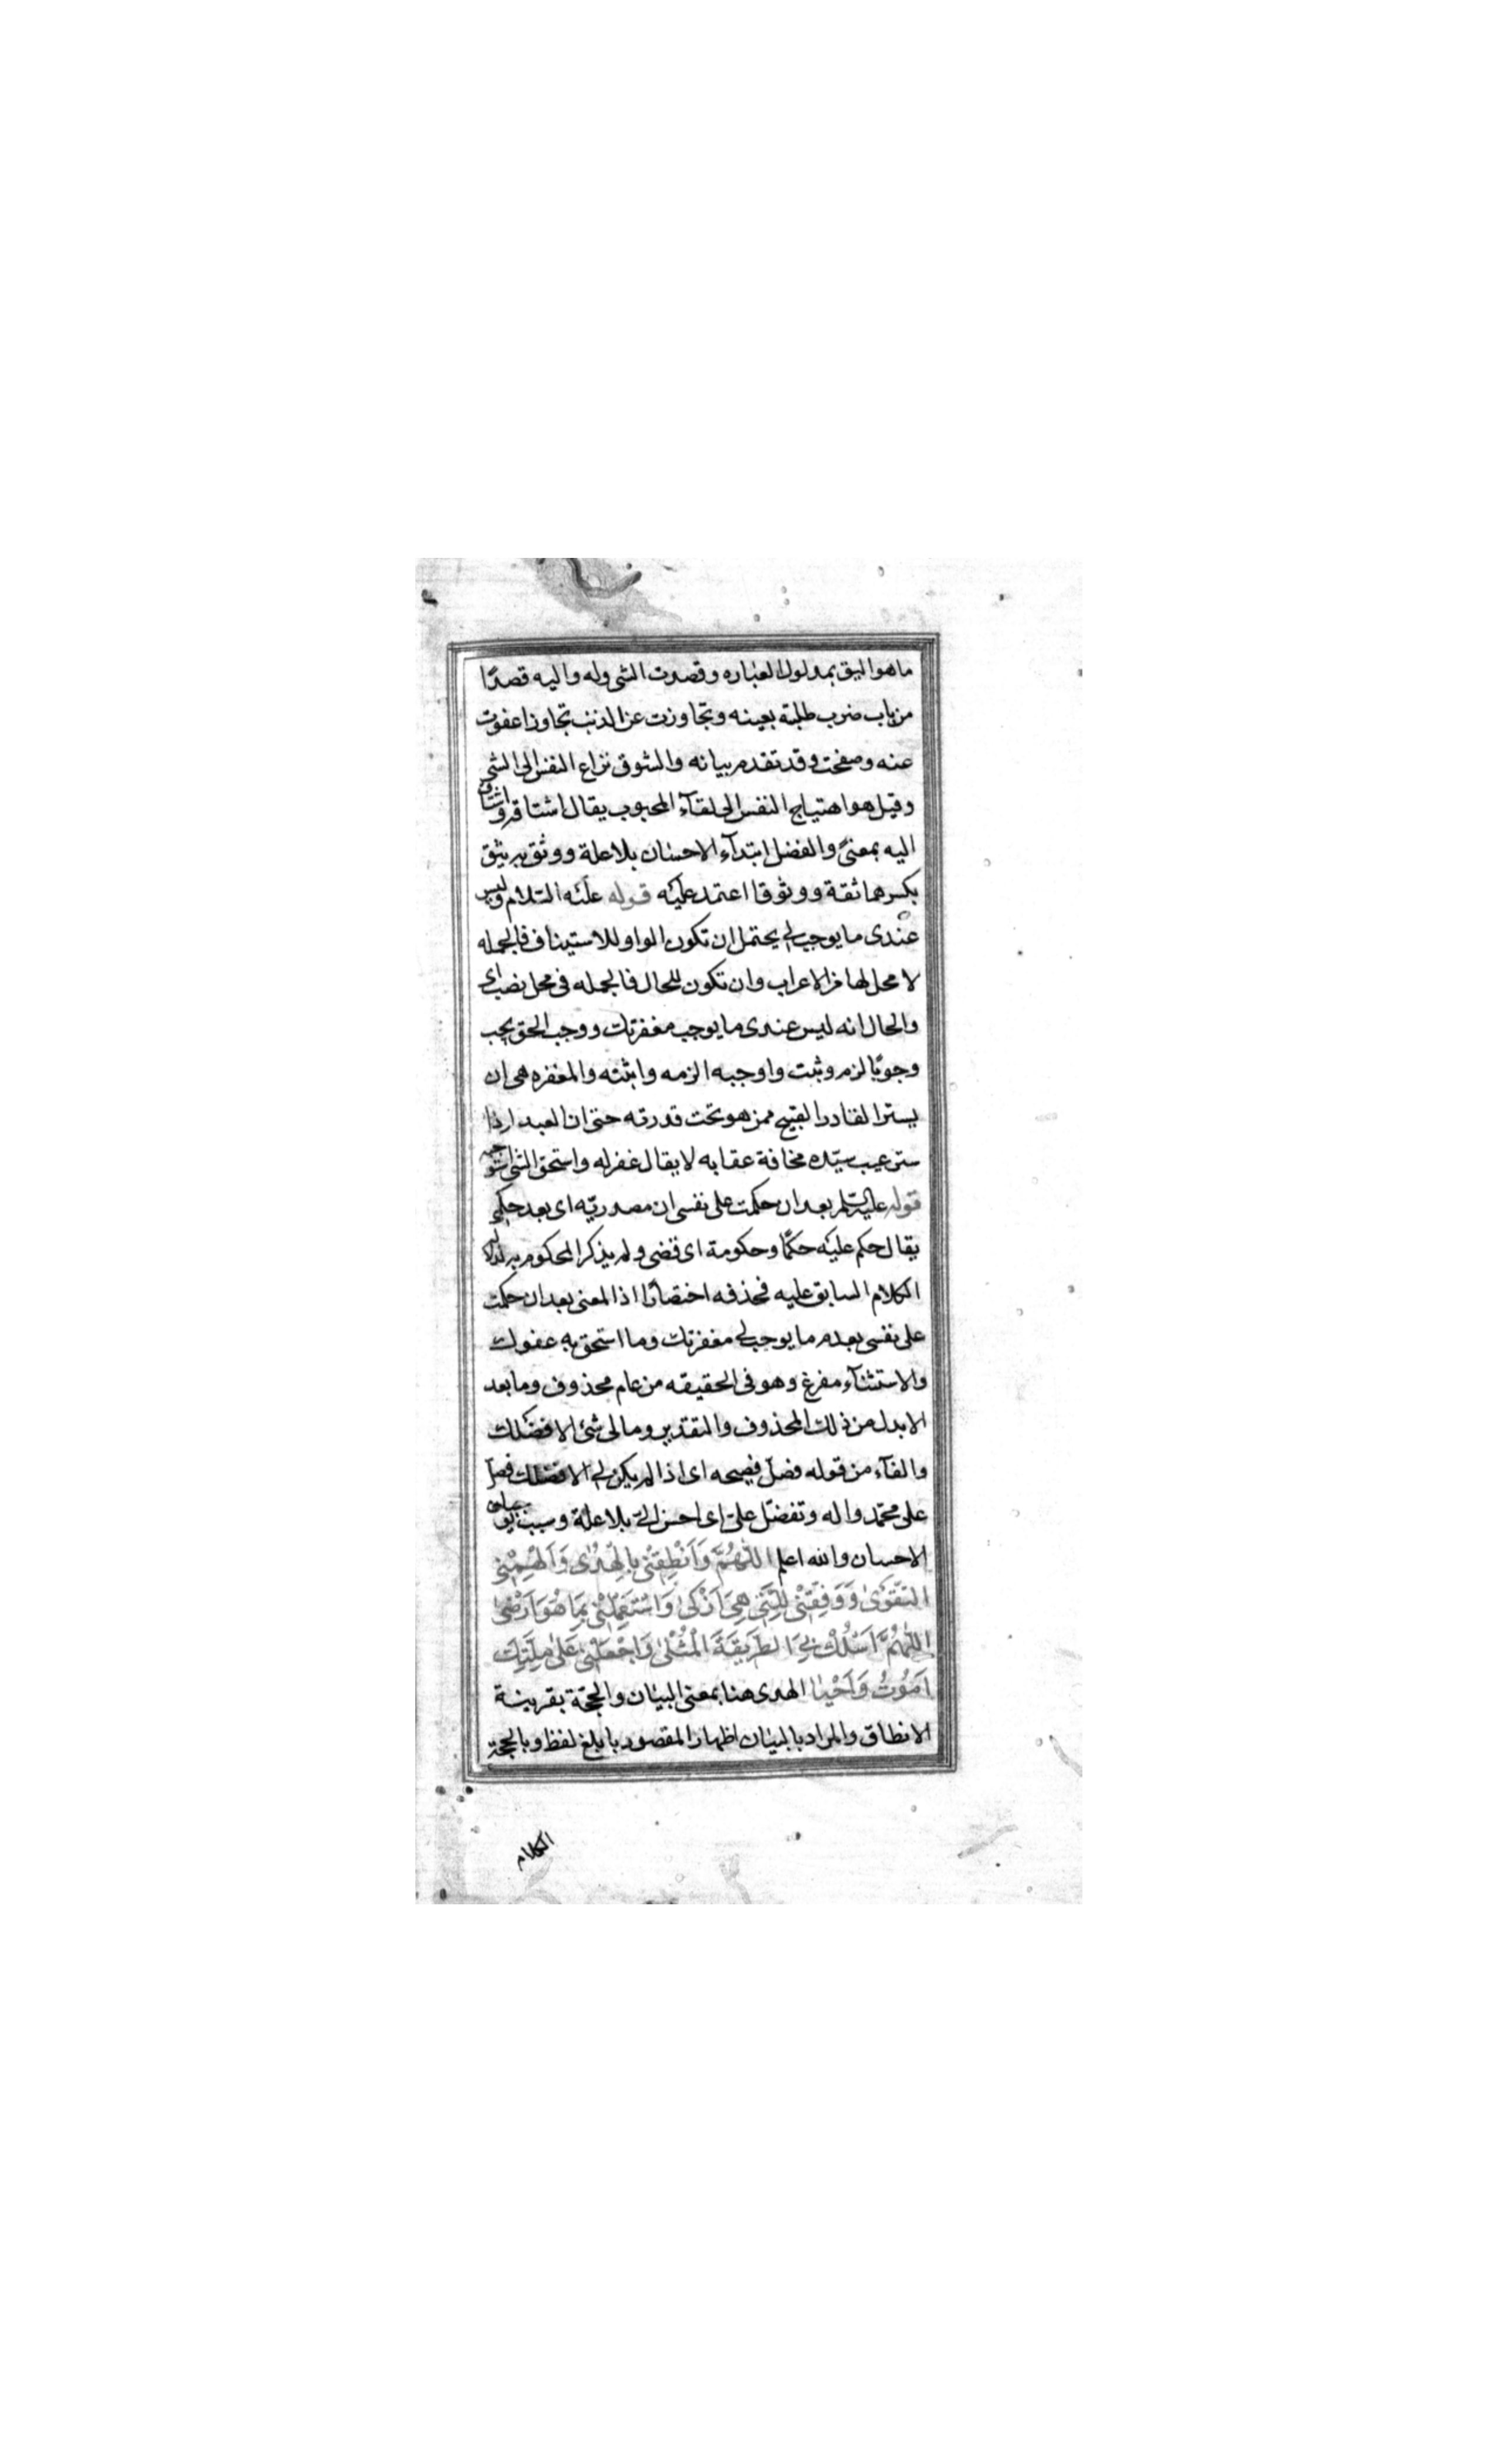 ما هو اليق بمدلول العباره وقصدت الشى وله واليه قصدًا
من باب ضرب طلبته بعينه وتجاوزت عن الذنب تجاوزا عفوت
عنه وصفحت وقد تقدم بيانه والشوق نزاع النفس الى الشى
وقيل هو اهتياج النفس الى لقآء المحبوب يقال اشتاقه واشتاق
اليه بمعنًى والفضل ابتدآء الاحسان بلا علة ووثق به يثق
بكسرهما ثقة ووثوقا اعتمد عليه قوله عليه السلام وليس
عندى ما يوجب لى يحتمل ان تكون الواو للاستيناف فالجمله
لا محل لها من الاعراب وان تكون للحال فالجمله فى محل نصب اى
والحال انه ليس عندى ما يوجب مغفرتك ووجب الحق يجب
وجوبًا لزم وثبت واوجبه الزمه واثبته والمغفره هى ان
يستر القادر القبيح ممن هو تحت قدرته حتى ان العبد اذا
ستر عيب سيّده مخافة عقابه لا يقال غفر له واستحق الشى استوجبه
قوله عليه السلم بعد ان حكمت على نفسى ان مصدريّه اى بعد حكمى
يقال حكم عليه حكمًا وحكومة اى قضى ولم يذكر المحكوم به لدلاله
الكلام السابق عليه فحذفه اختصارًا اذ المعنى بعد ان حكمت
على نفسى بعدم ما يوجب لى مغفرتك وما استحق به عفوك
والاستثنآء مفرغ وهو فى الحقيقه من عام محذوف وما بعد
الا بدل من ذلك المحذوف والتقدير وما لى شئ الا فضلك
والفآء من قوله فصل فصيحه اى اذا لم يكن لى الا فضلك فصل
على محمّد واله وتفضّل علىّ اى احسن الىّ بلا علة وسبب
الاحسان والله اعلم اللّٰهُمَّ وَاَنْطِقْنى بِالْهُدٰى وَاَلْهِمْنِى
التَّقْوٰى وَوَفِّقْنى لِلَّتى هِىَ اَزْكٰى وَاسْتَعْمِلْنى بِمَا هُوَ اَرْضٰى
اللّٰهُمَّ اسْلُكْ بِىَ الطَّرِيقَةَ الْمُثْلٰى وَاجْعَلْنى عَلٰى مِلَّتِكَ
اَمُوتُ وَاَحْيٰا الهدى هنا بمعنى البيان والحجّة بقرينة
الانطاق والمراد بالبيان اظهار المقصود بابلغ لفظ وبالحجة
الكلام